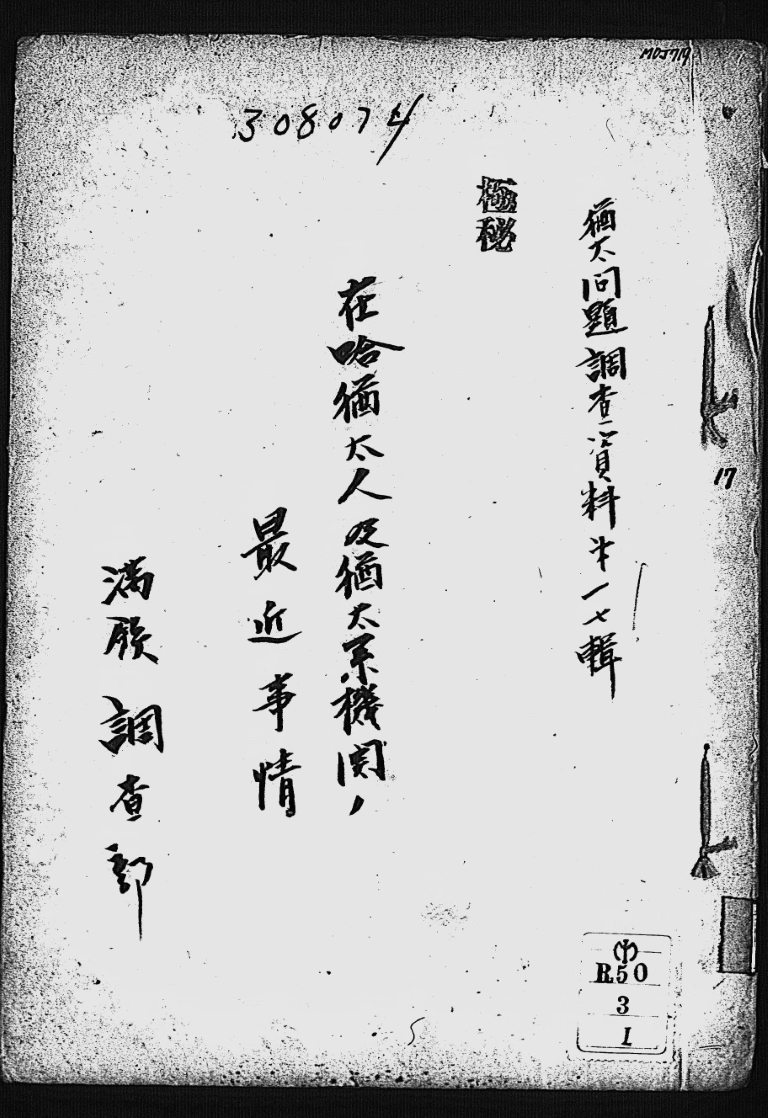 MOJ719
308074
猶太问題調査資料㐧一七輯
極秘
在哈猶太人及猶太系機関ノ
最近事情
満鉄調査部
17
R.50
3
1